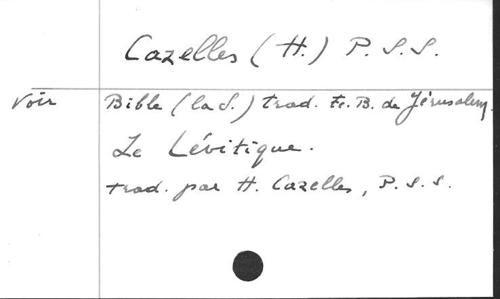 Cazelles (H.) P.S.S.
Voir Bible (la S.) trad. fr. B. de Jérusalem.
Le Lévitique.
trad. par H. Cazelles, P.S.S.